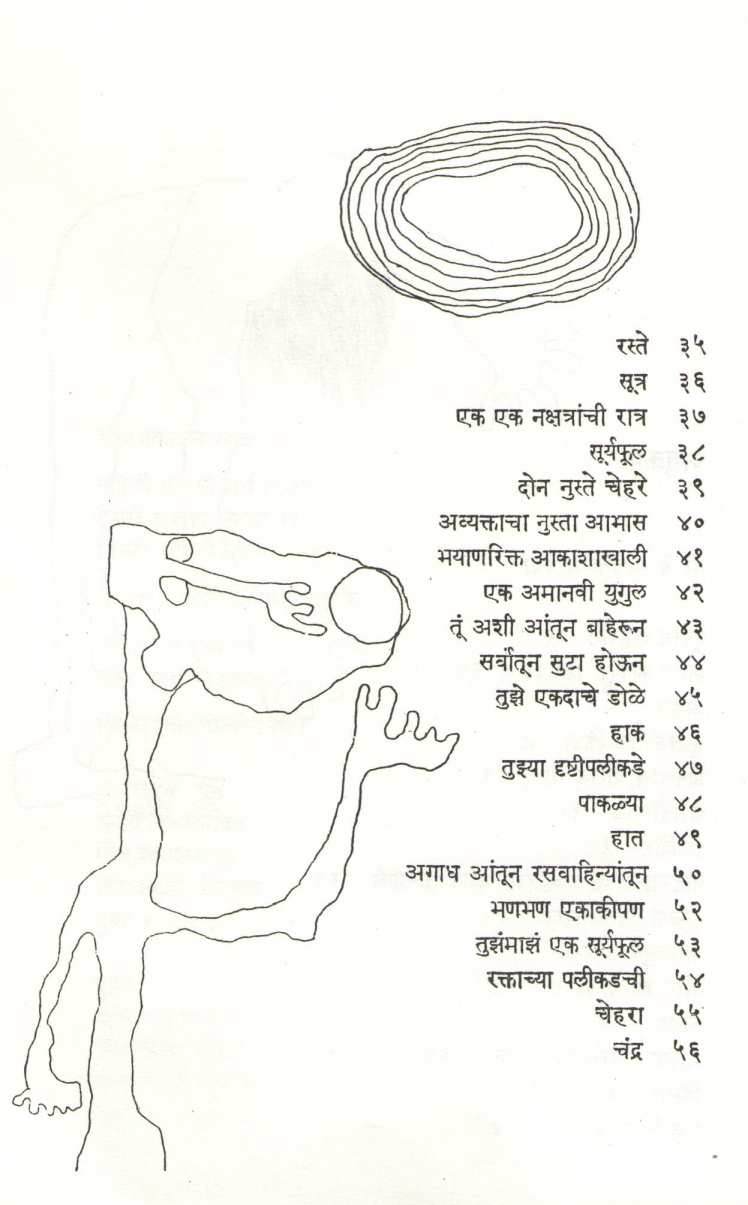 रस्ते ३५
सूत्र ३६
एक एक नक्षत्रांची रात्र ३७
सूर्यफूल ३८
दोन नुस्ते चेहरे ३९
अव्यक्ताचा नुस्ता आभास ४०
भयाणरिक्त आकाशाखाली ४१
एक अमानवी युगुल ४२
तूं अशी आंतून बाहेरून ४३
सर्वांतून सुटा होऊन ४४
तुझे एकदाचे डोळे ४५
हाक ४६
तुझ्या दृष्टीपलीकडे ४७
पाकळ्या ४८
हात ४९
अगाध आंतून रसवाहिन्यांतून ५०
भणभण एकाकीपण ५२
तुझंमाझं एक सूर्यफूल ५३
रक्ताच्या पलीकडची ५४
चेहरा ५५
चंद्र ५६